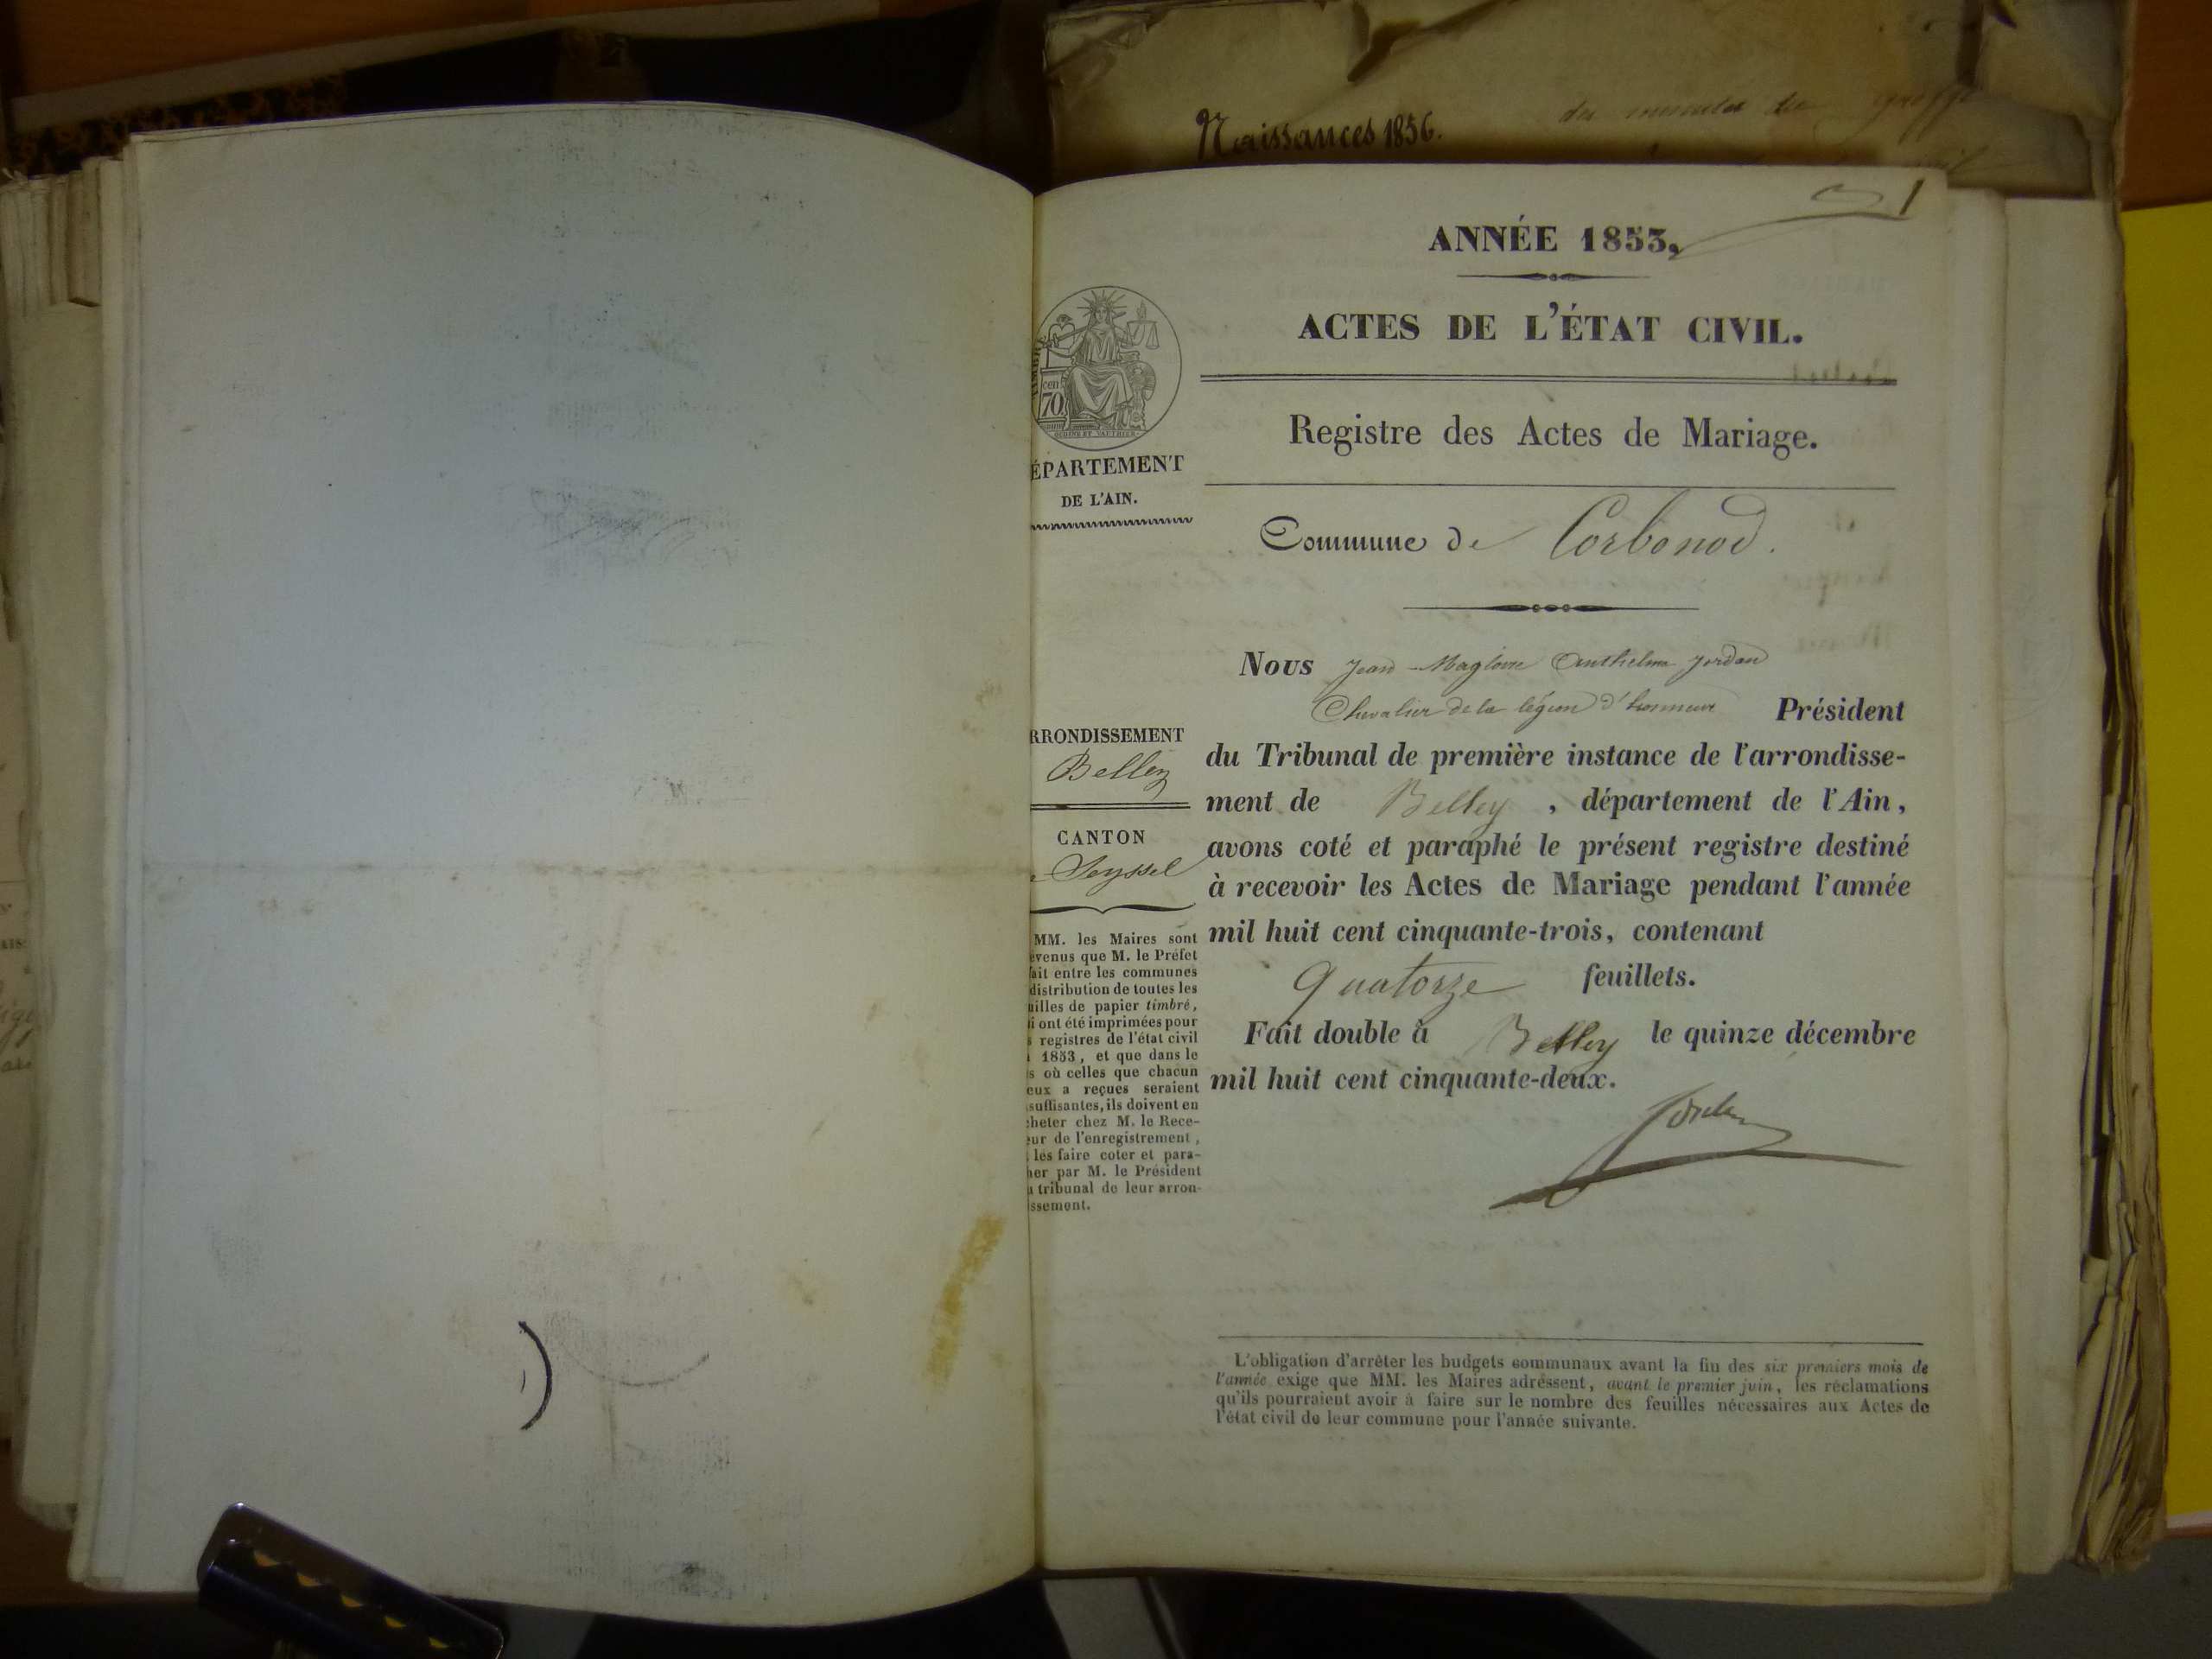 Naissances 1856.
1
ANNÉE 1853,
ACTES DE L'ÉTAT CIVIL.
Registre des Actes de Mariage.
cen
70
ÉPARTEMENT
DE L'AIN.
Commune de Corbonod.
Nous Jean-Magloire Anthelme Jordan
Chevalier de la légion d'honneur Président
du Tribunal de première instance de l'arrondisse-
ment de Belley, département de l'Ain,
avons coté et paraphé le présent registre destiné
à recevoir les Actes de Mariage pendant l'année
mil huit cent cinquante-trois, contenant
quatorze feuillets.
Fait double à Belley le quinze décembre
mil huit cent cinquante-deux.
Jordan
RRONDISSEMENT
Belley
CANTON
Seyssel
MM. les Maires sont
evenus que M. le Préfet
fait entre les communes
distribution de toutes les
uilles de papier timbré,
i ont été imprimées pour
s registres de l'état civil
1853, et que dans le
s où celles que chacun
eux a reçues seraient
suffisantes, ils doivent en
cheter chez M. le Rece-
eur de l'enregistrement,
les faire coter et para-
her par M. le Président
u tribunal de leur arron-
ssement.
L'obligation d'arrêter les budgets communaux avant la fin des six premiers mois de
l'année exige que MM. les Maires adressent, avant le premier juin, les réclamations
qu'ils pourraient avoir à faire sur le nombre des feuilles nécessaires aux Actes de
l'état civil de leur commune pour l'année suivante.